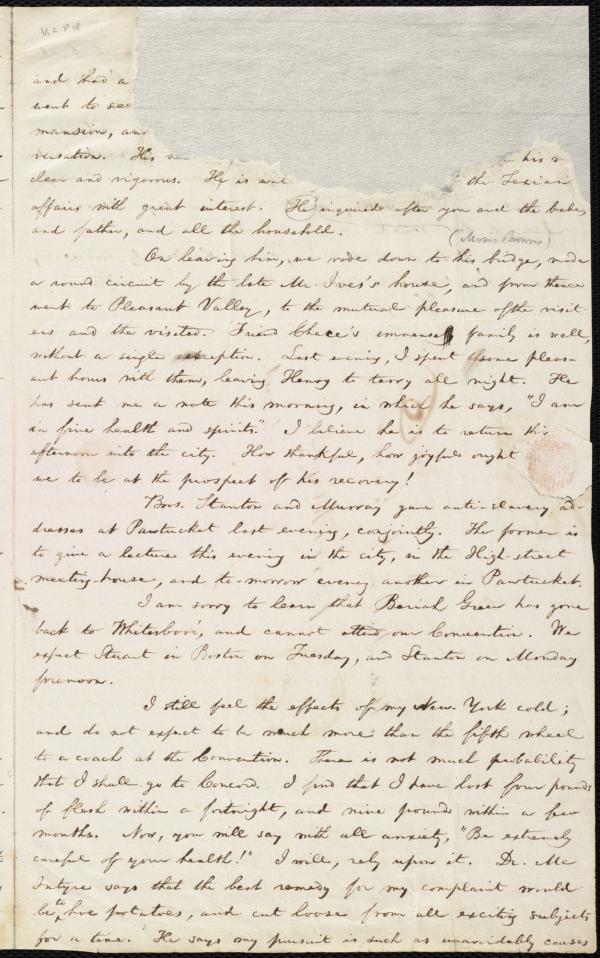 and had a
went to see
mansion, and
versation. His his
clear and vigorous. He is the Texian
affairs with great interest. He inquired after you and the babes,
and father, and all the household.
(Moses Brown)
On leaving him, we rode down to his bridge, made
a round circuit by the late Mr. Ives's house, and from thence
went to Pleasant Valley, to the mutual pleasure of the visit-
ers and the visited. Friend Chace's immense family is well,
without a single exception. Last evening, I spent some pleas-
ant hours with them, leaving Henry to tarry all night. He
has sent me a note this morning, in which he says, "I am
in fine health and spirits." I believe he is to return this
afternoon into the city. How thankful, how joyful ought
we to be at the prospect of his recovery!
Bros. Stanton and Murray gave anti-slavery ad-
dresses at Pawtucket last evening, conjointly. The former is
to give a lecture this evening in the city, in the High-street
meeting-house, and to-morrow evening another in Pawtucket.
I am sorry to learn that Beriah Green has gone
back to Whitesboro', and cannot attend our Convention. We
expect Stuart in Boston on Tuesday, and Stanton on Monday
forenoon.
I still feel the effects of my New-York cold;
and do not expect to be much more than the fifth wheel
to a coach at the Convention. There is not much probability
that I shall go to Concord. I find that I have lost four pounds
of flesh within a fortnight, and nine pounds within a few
months. Now, you will say with all anxiety, "Be extremely
careful of your health!" I will, rely upon it. Dr. Mc
Intyre says that the best remedy for my complaint would
be, to hoe potatoes, and cut loose from all exciting subjects
for a time. He says my pursuit is such as unavoidably causes